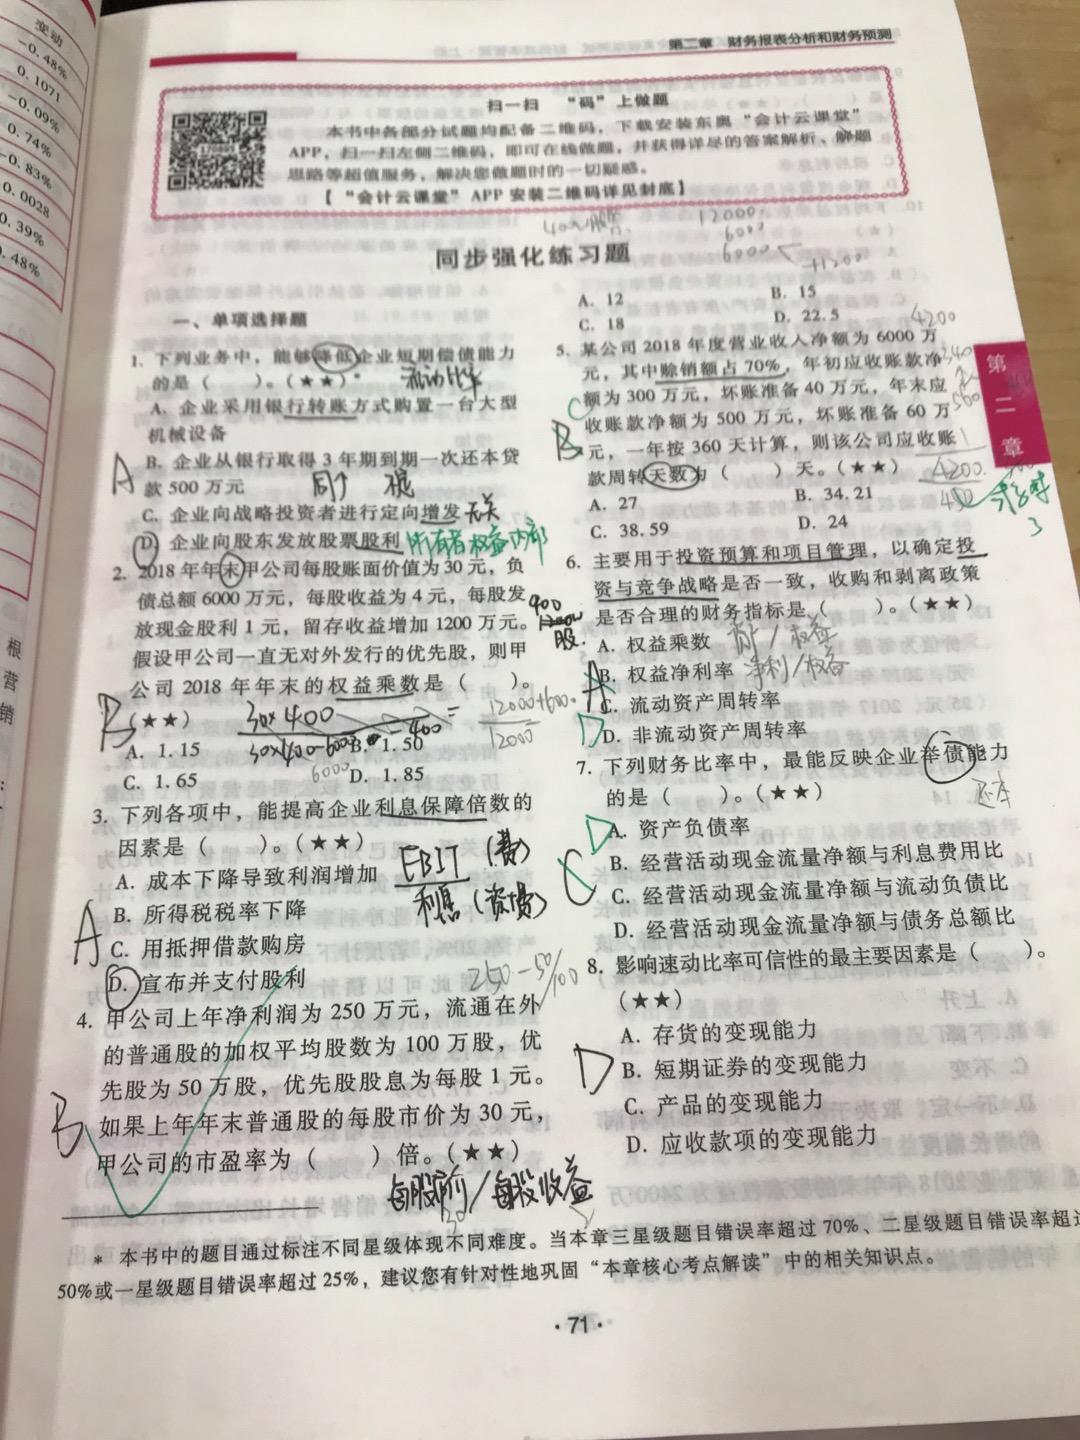 变动
-0.48%
0.1071
-0.09%
0.74%
-0.83%
0.0028
0.39%
0.48%
根
营
销
第二章 财务报表分析和财务预测
扫一扫 “码”上做题
本书中各部分试题均配备二维码，下载安装东奥“会计云课堂”
APP，扫一扫左侧二维码，即可在线做题，并获得详尽的答案解析、解题
思路等超值服务，解决您做题时的一切疑惑。
【“会计云课堂”APP安装二维码详见封底】
12000
6000
6000
同步强化练习题
一、单项选择题
1. 下列业务中，能够降低企业短期偿债能力
的是（ ）。（★★）* 流动比率
A. 企业采用银行转账方式购置一台大型
机械设备
B. 企业从银行取得3年期到期一次还本贷
款500万元
A
C. 企业向战略投资者进行定向增发 无关
D. 企业向股东发放股票股利 所有者权益内部
2. 2018年年末甲公司每股账面价值为30元，负
债总额6000万元，每股收益为4元，每股发
放现金股利1元，留存收益增加1200万元。
假设甲公司一直无对外发行的优先股，则甲
公司2018年年末的权益乘数是（ ）。
（★★）
400
股
B
30×400
30×400-6000
=
12000+600
12000
6000
A. 1.15 B. 1.50
C. 1.65 D. 1.85
3. 下列各项中，能提高企业利息保障倍数的
因素是（ ）。（★★）
A. 成本下降导致利润增加
B. 所得税税率下降
C. 用抵押借款购房
D. 宣布并支付股利
A
EBIT（费）
利息（资+费）
250-50/100
4. 甲公司上年净利润为250万元，流通在外
的普通股的加权平均股数为100万股，优
先股为50万股，优先股股息为每股1元。
如果上年年末普通股的每股市价为30元，
甲公司的市盈率为（ ）倍。（★★）
B
每股价/每股收益
30
A. 12 B. 15
C. 18 D. 22.5
5. 某公司2018年度营业收入净额为6000万
元，其中赊销额占70%，年初应收账款净
额为300万元，坏账准备40万元，年末应
收账款净额为500万元，坏账准备60万
元，一年按360天计算，则该公司应收账
款周转天数为（ ）天。（★★）
A. 27 B. 34.21
C. 38.59 D. 24
C
B
4200
340
560
4200
6. 主要用于投资预算和项目管理，以确定投
资与竞争战略是否一致，收购和剥离政策
是否合理的财务指标是（ ）。（★★）
A. 权益乘数
B. 权益净利率 净利/权益
C. 流动资产周转率
D. 非流动资产周转率
A
D
7. 下列财务比率中，最能反映企业举债能力
的是（ ）。（★★）
还本
A. 资产负债率
B. 经营活动现金流量净额与利息费用比
C. 经营活动现金流量净额与流动负债比
D. 经营活动现金流量净额与债务总额比
D
C
8. 影响速动比率可信性的最主要因素是（ ）。
（★★）
A. 存货的变现能力
B. 短期证券的变现能力
C. 产品的变现能力
D. 应收款项的变现能力
D
第
二
章
* 本书中的题目通过标注不同星级体现不同难度。当本章三星级题目错误率超过70%、二星级题目错误率超过
50%或一星级题目错误率超过25%，建议您有针对性地巩固“本章核心考点解读”中的相关知识点。
·71·